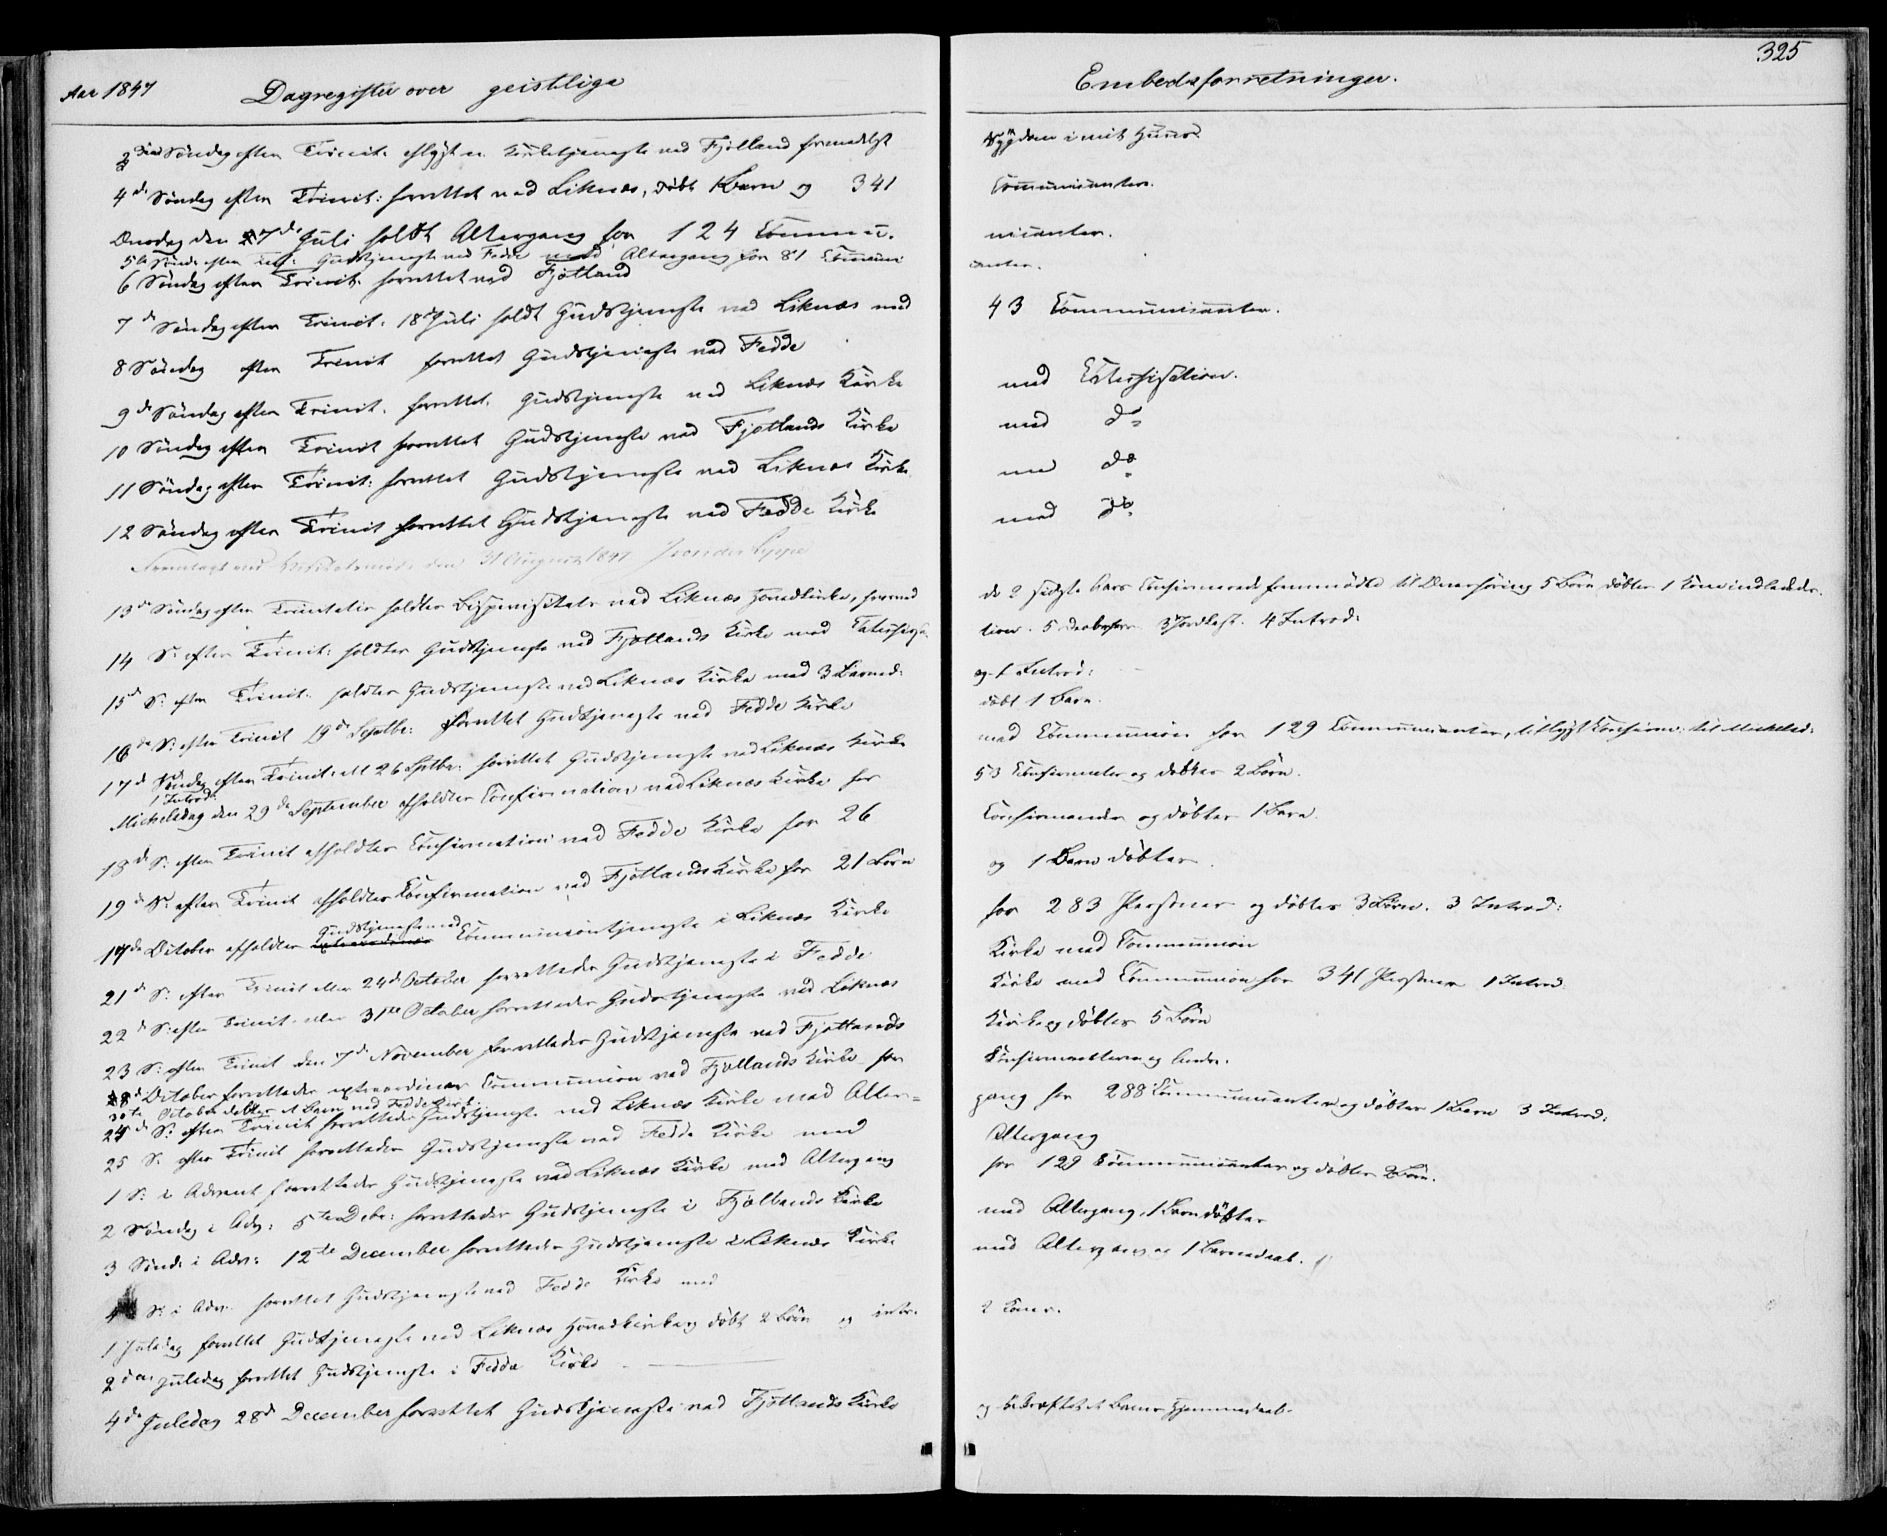 325
Aar 1847 Dagregister over geistlige Embedsforretninger.
3die Søndag efter Trinit. Kirketjeneste ved Fjotland formedelst Sygdom i mit Huus.
4de Søndag efter Trinit: forrettet ved Liknes, døbt 1 Barn og 341 Communicanter.
Onsdag den 7de Juli holdt Altergang for 124 Commu- nicanter.
5te Sønd. efter Gudstjeneste ved Fedde med Altergang for 81 Communi canter.
6 Søndag efter Trinit. forrettet ved Fjotland
7de Søndag efter Trinit. 18de Juli holdt Gudstjeneste ved Liknes med 43 Communicanter.
8 Søndag efter Trinit forrettet Gudstjeneste ved Fedde
9de Søndag efter Trinit. forrettet Gudstjeneste ved Liknes Kirke med Catechisation.
10 Søndag efter Trinit forrettet Gudstjeneste ved Fjotlands Kirke med do
11 Søndag efter Trinit: forrettet Gudstjeneste ved Liknes Kirke med do
12 Søndag efter Trinit forrettet Gudstjeneste ved Fedde Kirke med do
den 31 August 1847
13de Søndag efter Trinitatis holdtes Bispevisitats ved Liknes Hovedkirke, hvorved de 2 sidste Aars Confirmerede fremmødte til Overhøring 5 Børn døbtes 1 Kone indlededes.
14 S. efter Trinit: holdtes Gudstjeneste ved Fjotlands Kirke med Catechisa- tion. 5 3 Jordkast. 4 Introd:
15de S. efter Trinit. holdtes Gudstjeneste ved Liknes Kirke med 3 Barned: og 1 Introd:
16de S: efter Trinit 19de Septbr: forrettet Gudstjeneste ved Fedde Kirke døbt 1 Barn.
17de Søndag efter Trinit: 26 Septbr. forrettet Gudstjeneste ved Liknes Kirke med Communion for 129 Communicanter, tillyst Confirm: til Mickelsd:
1 Introd:
Mickelsdag den 29de September afholdtes Confirmation ved Liknes Kirke for 53 Confirmanter og døbtes 2 Børn.
18de S: efter Trinit afholdtes Confirmation ved Fedde Kirke for 26 Confirmander og døbtes 1 Barn.
19de S: efter Trinit afholdtes Confirmation ved Fjotlands Kirke for 21 Børn og 1 Barn døbtes.
17de October afholdtes Gudstjeneste med Communiontjeneste i Liknes Kirke for 283 Personer og døbtes 3 Børn. 3 Introd:
21de S: efter Trinit 24de October forrettedes Gudstjeneste i Fedde Kirke med Communion
22de S: efter Trinit 31te October forrettedes Gudstjeneste ved Liknes Kirke med Communion for 341 Personer 1 Introd
23 S: efter Trinit den 7de November forrettedes Gudstjeneste ved Fjotlands Kirke og døbtes 5 Børn
October forrettedes extraordinær Communion ved Fjotlands Kirke for Confirmanterne og Andre.
30te October døbtes et Barn ved Fedde Kirk.
24de S: efter Trinit forrettedes Gudstjeneste ved Liknes Kirke med Alter= gang for 288 Communicanter og døbtes 1 Barn 3 Introd:
25 S. efter Trinit forrettedes Gudstjeneste ved Fedde Kirke med Altergang
1 S: i Advent forrettedes Gudstjeneste ved Liknes Kirke med Altergang for 129 Communicanter og døbtes 2 Børn.
2 Søndag i Adv: 5te Decbr: forrettedes Gudstjeneste i Fjotlands Kirke med Altergang, 1 Barn døbtes
3 Sønd: i Adv: 12te December forrettedes Gudstjeneste i Liknes Kirke med Altergang og 1 Barnedaab.
4 S: i Adv. forrettet Gudstjeneste ved Fedde Kirke med
1 Juledag forrettet Gudstjeneste ved Liknes Hovedkirke og døbt 2 Børn og intr. 2 Koner.
2den Juledag forrettet Gudstjeneste i Fedde Kirke
4de Juledag 28de December forrettet Gudstjeneste ved Fjotlands Kirke og bekræftet et Barns Hjemmedaab.